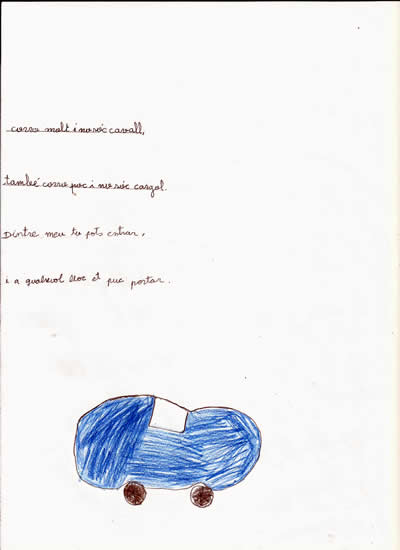 corro molt i no sóc cavall,
també corro poc i no sóc cargol.
Dintre meu tu pots entrar,
i a qualsevol lloc et puc portar.